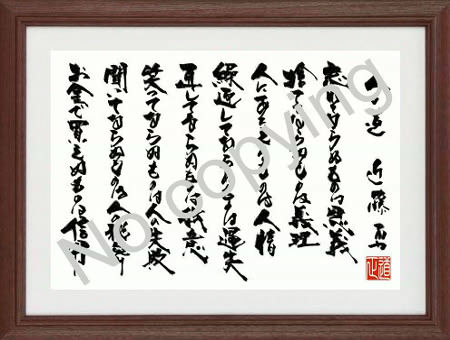 近藤 勇
忘れてならぬものは恩義
捨ててならぬものは義理
人にあたえるものは人情
繰返してならぬものは過失
通してならぬものは我意
笑ってならぬものは人の失敗
聞いてならぬものは人の秘密
お金で買えぬものは信用
No copying